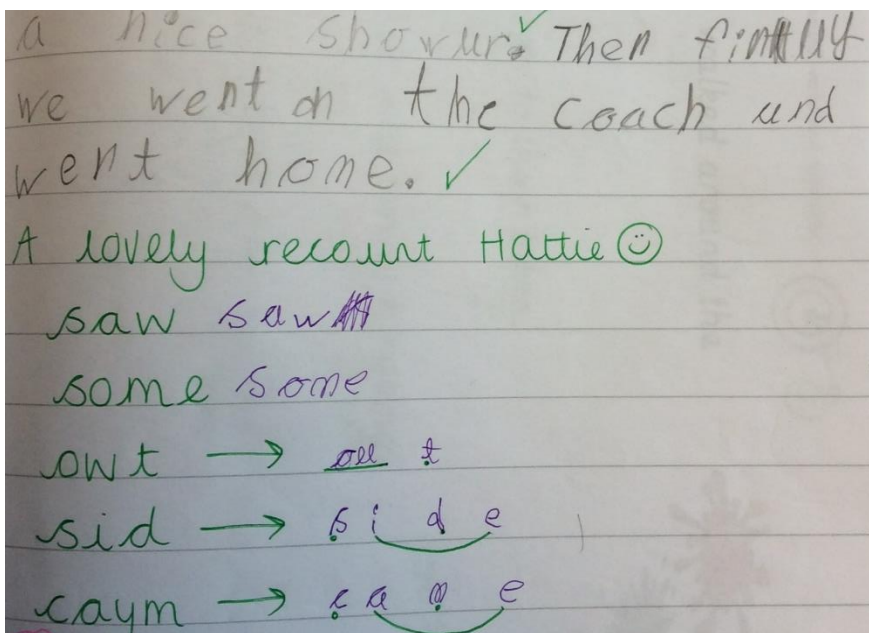 a nice showur. Then finally
we went on the coach and
went home.
A lovely recount Hattie
saw saw
some some
owt → ou t
sid → s i d e
caym → c a m e